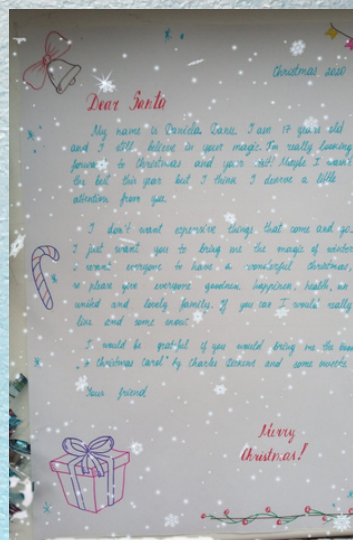 Christmas 2020
Dear Santa
My name is Daniela Danic. I am 17 years old
and I still believe in your magic. I'm really looking
forward to Christmas and your visit! Maybe I wasn't
the best this year but I think I deserve a little
attention from you.
I don't want expensive things that come and go.
I just want you to bring me the magic of winter.
I want everyone to have a wonderful Christmas,
so please give everyone goodness, happiness, health, an
united and lovely family. If you can I would really
like and some snow.
I would be grateful if you would bring me the book
"A Christmas Carol" by Charles Dickens and some sweets.
Your friend
Merry
Christmas!